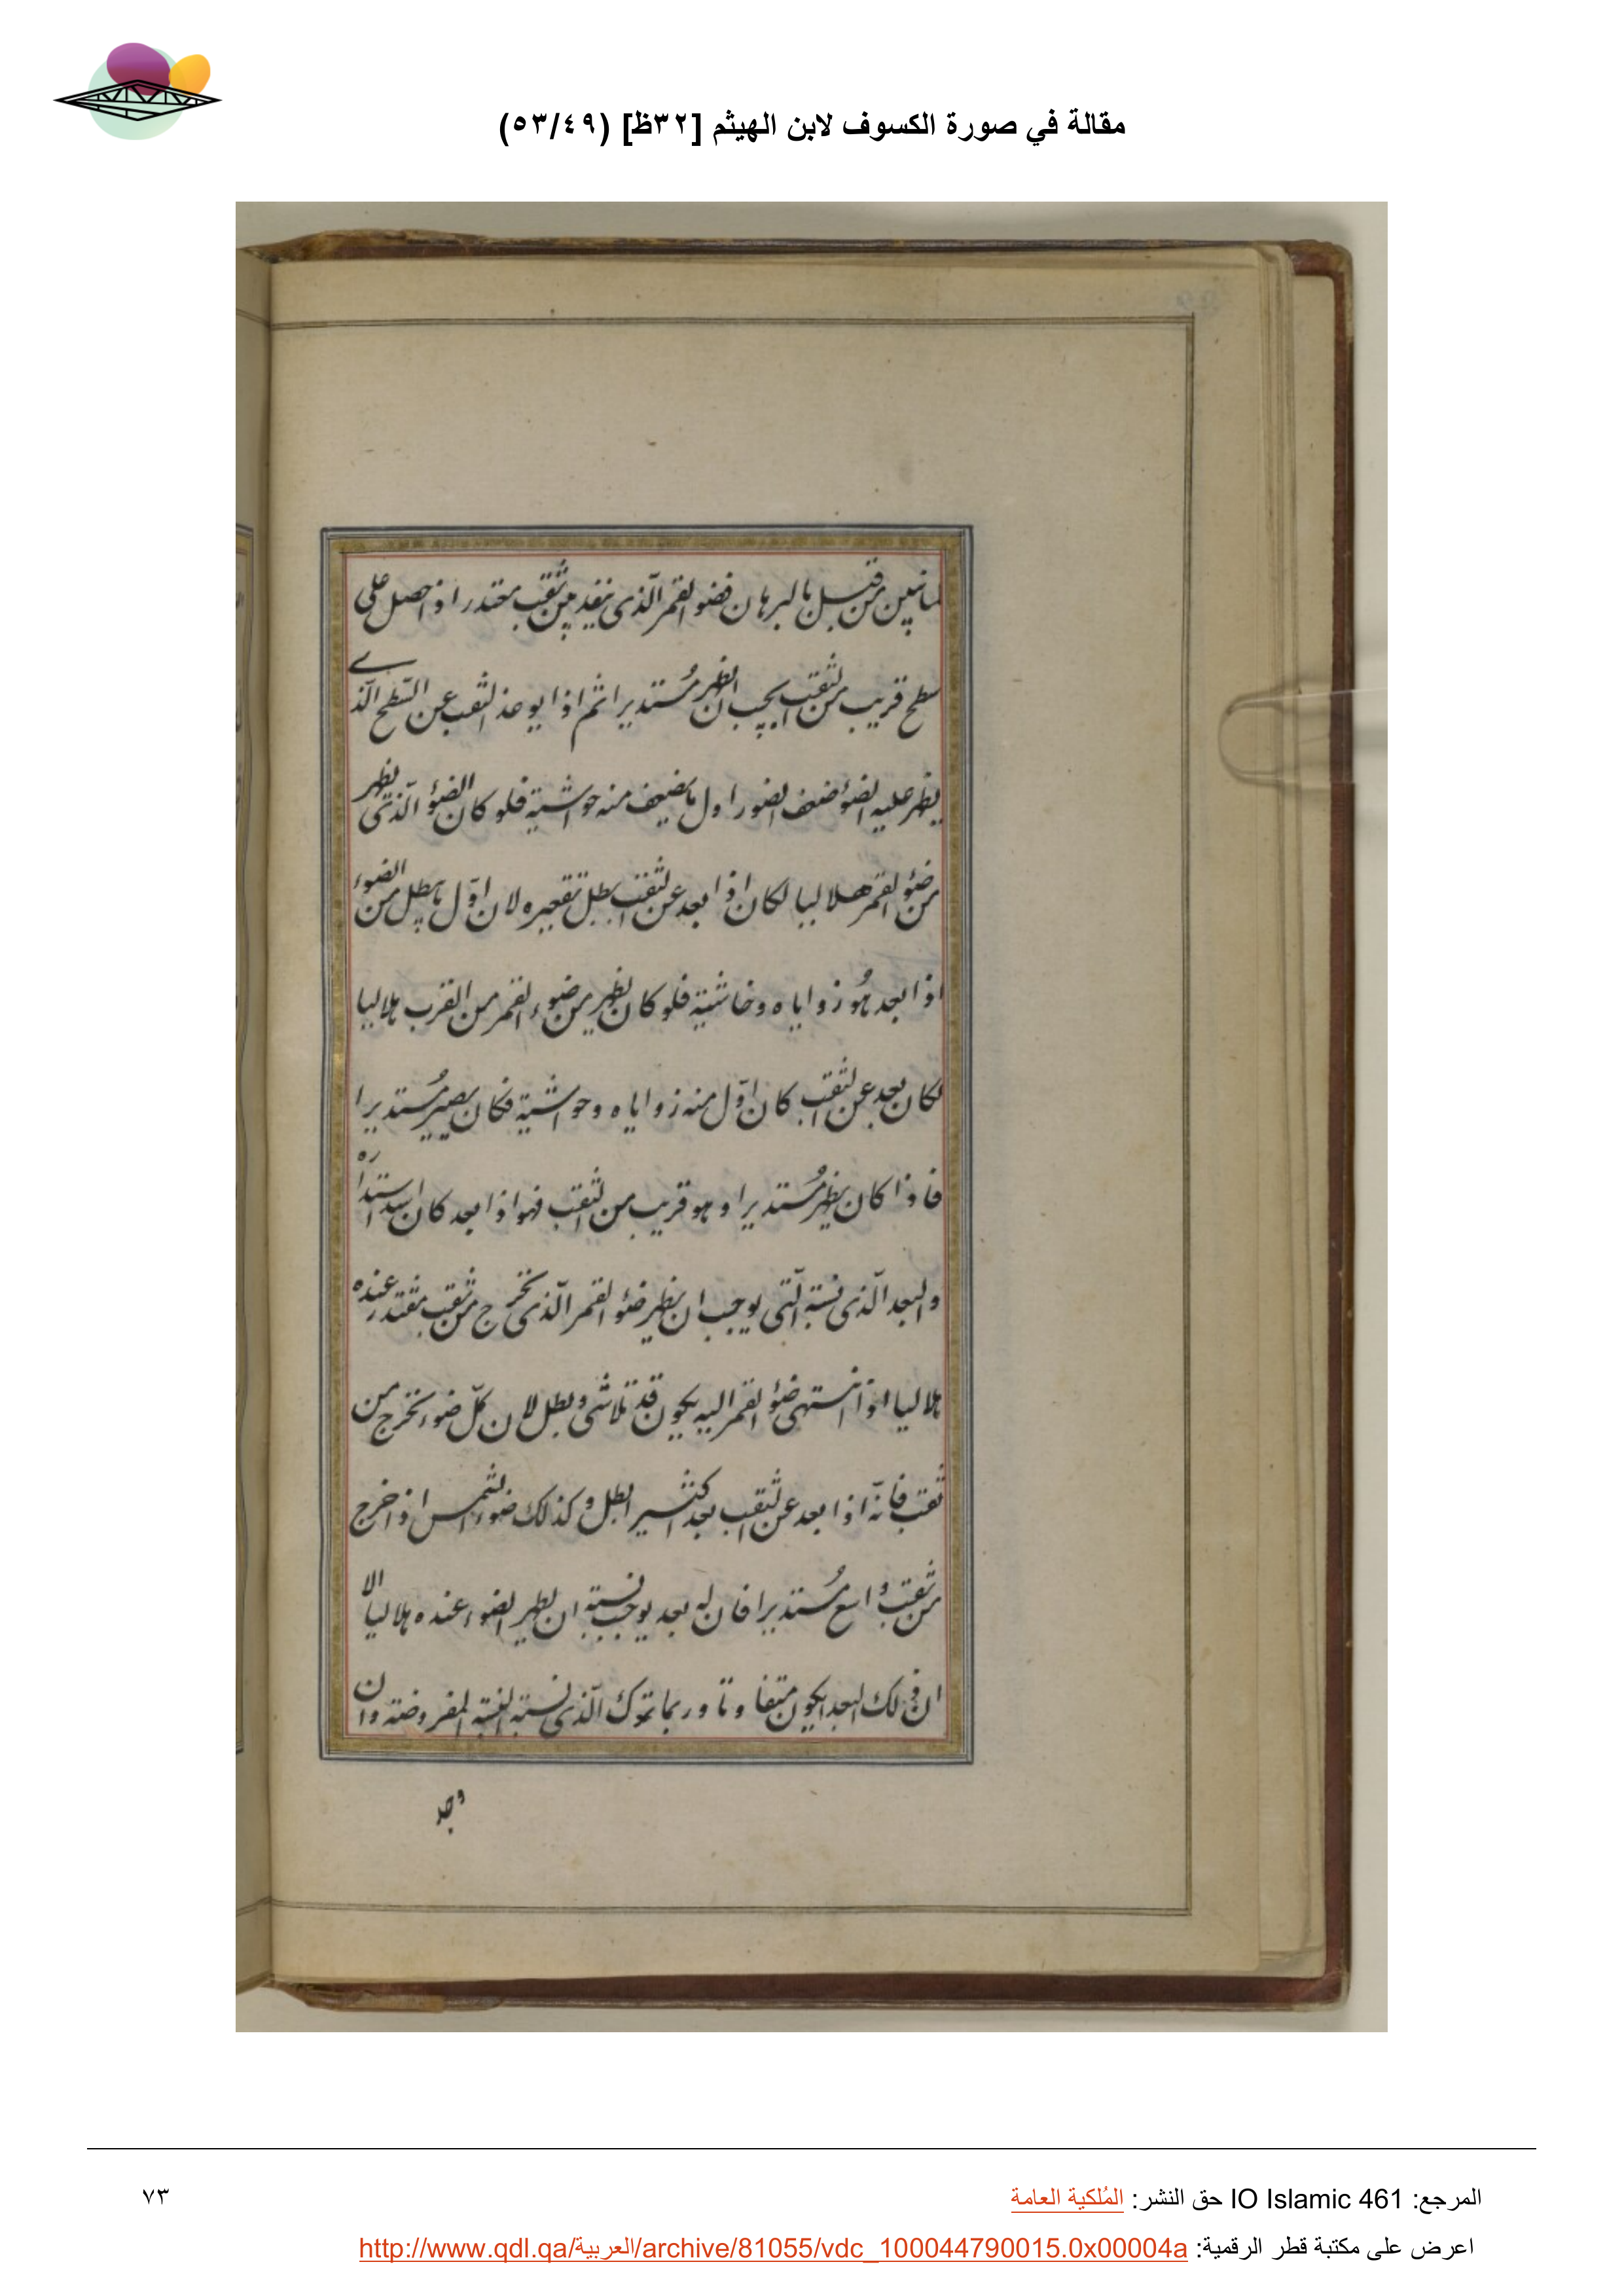 مقالة في صورة الكسوف لابن الهيثم [٣٢ظ] (٥٣/٤٩)
لما تبين من قبل بالبرهان فضو القمر الذى ينفد من ثقب مقتدر اذ احصل على
سطح قريب من الثقب يجب ان يظهر مستديرا ثم اذا بوعد الثقب عن السطح الذے
يظهر عليه الضؤ ضعف الضو اول ما يضعف منه حواشية فلو كان الضؤ الذى يظهر
من ضؤ القمر هلاليا لكان اذا بعد عن الثقب بطل تقعيره لان اول ما يبطل من الضوء
اذا بعد هو زواياه وحاشية فلو كان يظهر من ضوء القمر من القرب هلاليا
لكان بعد عن الثقب كان اول منه زواياه وحواشية فكان يصير مستديرا
فاذا كان يظهر مستديرا وهو قريب من الثقب فهو اذا بعد كان اشد استداره
والبعد الذى نسبة التى يوجب ان يظهر ضؤ القمر الذى تخرج من ثقب مقتدر عنده
هلاليا اذا انتهى ضؤ القمر اليه يكون قد تلاشى وبطل لان كل ضوء تخرج من
ثقب فانه اذا بعد عن الثقب بعد كثير ابطل وكذلك ضوء الشمس اذ اخرج
من ثقب واسع مستديرا فان له بعد يوجب نسبة ان يظهر الضوء عنده هلاليا الا
ان ذلك البعد يكون متفاوتا وربما ترك الذى نسبة النسبة المفروضة وان
وجد
المرجع: IO Islamic 461 حق النشر: المُلكية العامة
٧٣
اعرض على مكتبة قطر الرقمية: http://www.qdl.qa/العربية/archive/81055/vdc_100044790015.0x00004a